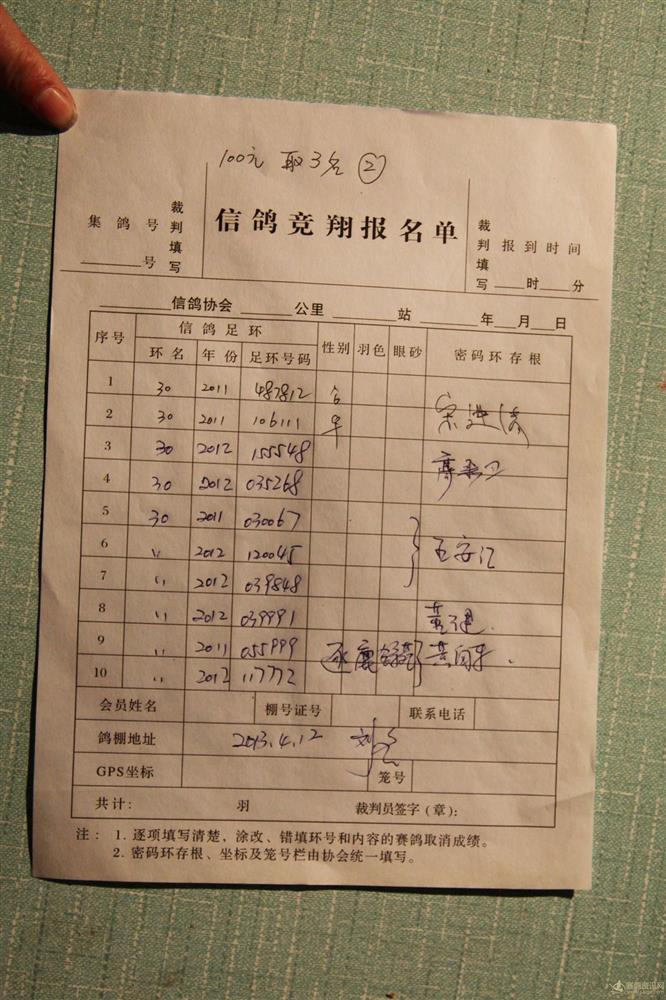 100元 取3名 ②
集鸽号 ______号
裁判填写
信鸽竞翔报名单
裁判填写
报到时间 ____时____分
______信鸽协会 ______公里 ______站 ______年___月___日
序号 信鸽足环 性别 羽色 眼砂 密码环存根
环名 年份 足环号码
1 30 2011 487812
2 30 2011 106111
3 30 2012 155548
4 30 2012 035268
5 30 2011 030067
6 〃 2012 120045
7 〃 2012 039848
8 〃 2012 039991
9 〃 2011 055999
10 〃 2012 117772
会员姓名 棚号证号 联系电话
鸽棚地址 2013.4.12
GPS坐标 笼号
共计: 羽 裁判员签字(章):
注: 1. 逐项填写清楚,涂改、错填环号和内容的赛鸽取消成绩。
2. 密码环存根、坐标及笼号栏由协会统一填写。